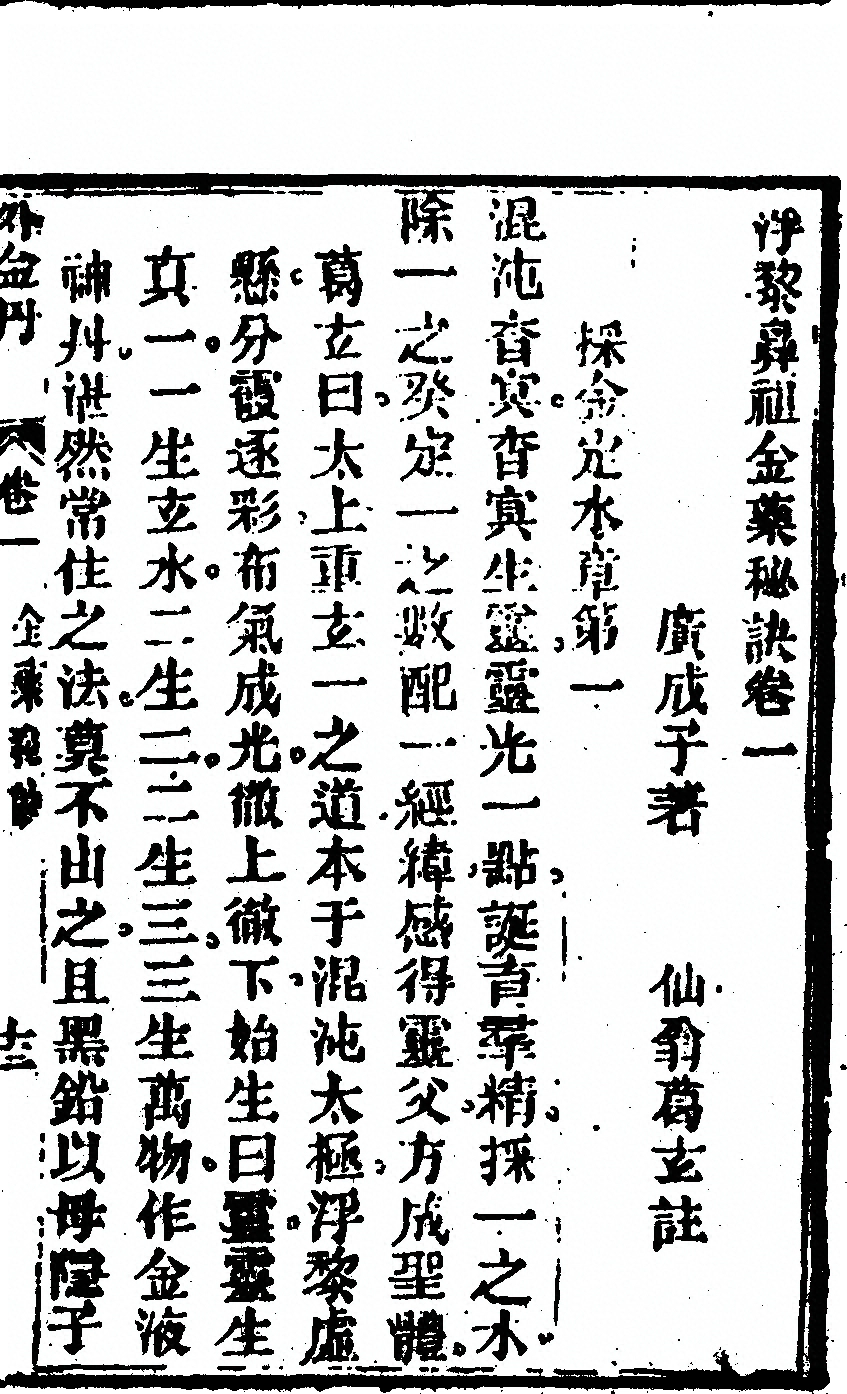 浮黎鼻祖金藥秘訣卷一
廣成子著 仙翁葛玄註
採金定水章第一
混沌杳冥杳冥生靈靈光一點誕育羣精採一之水
除一之癸定一之數配一經緯感得靈父方成聖體
葛玄曰太上重玄一之道本于混沌太極浮黎虛
懸分霞逐彩布氣成光徹上徹下始生曰靈靈生
真一一生玄水二生二二生三三生萬物作金液
神丹湛然常住之法莫不由之且黑鉛以母隱子
外金丹 卷一 金藥秘訣 十三